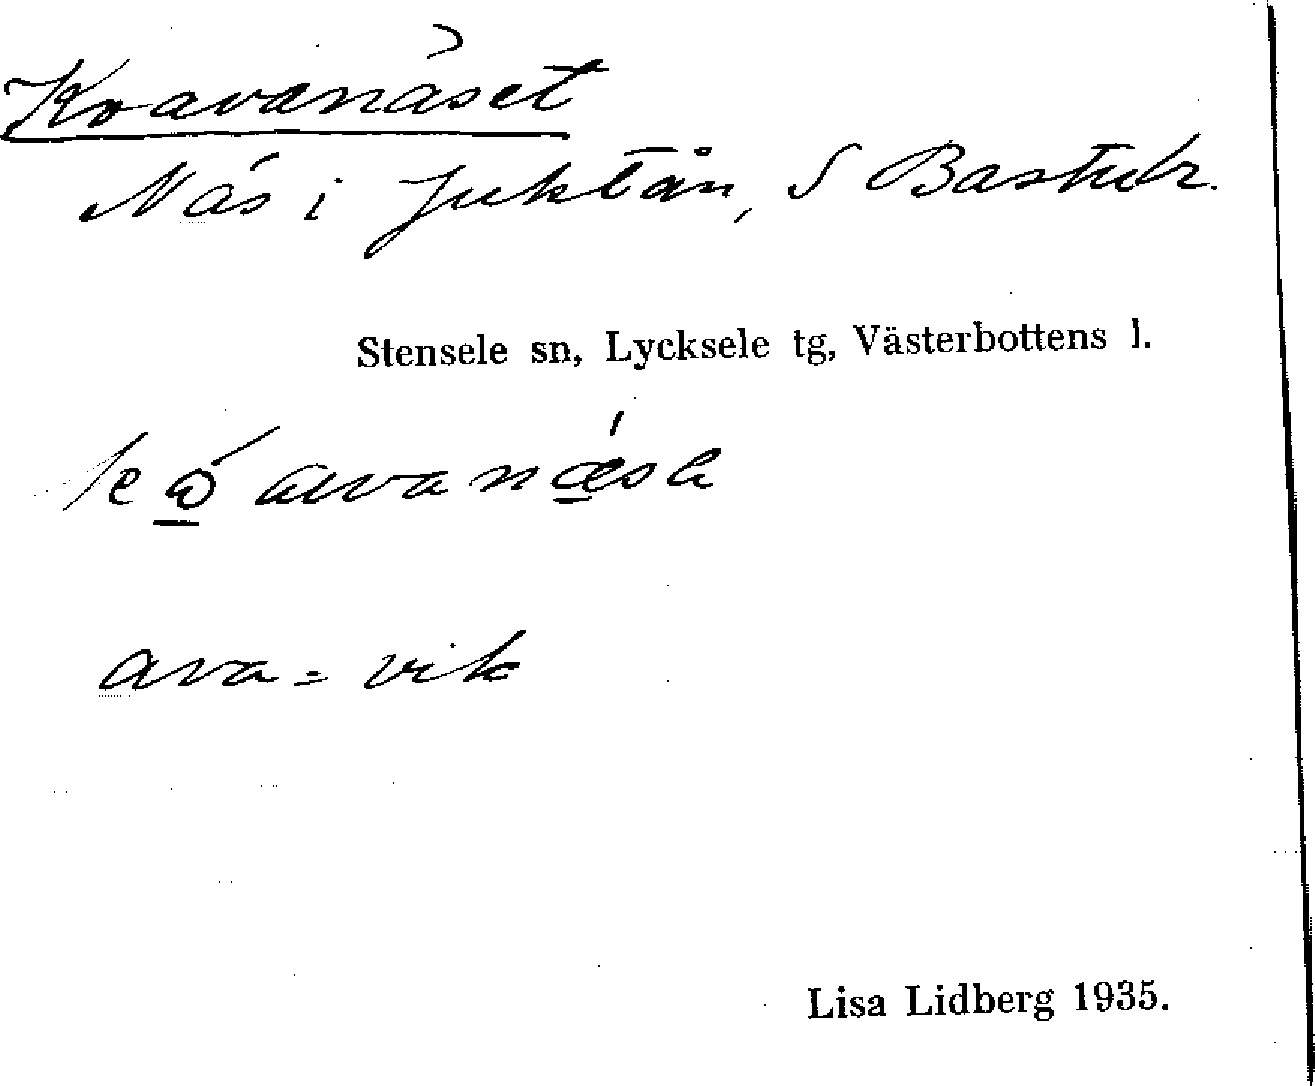 Koavanäset
Näs i Juktån, S Bastutr.
Stensele sn, Lycksele tg, Västerbottens l.
ava = vik
Lisa Lidberg 1935.